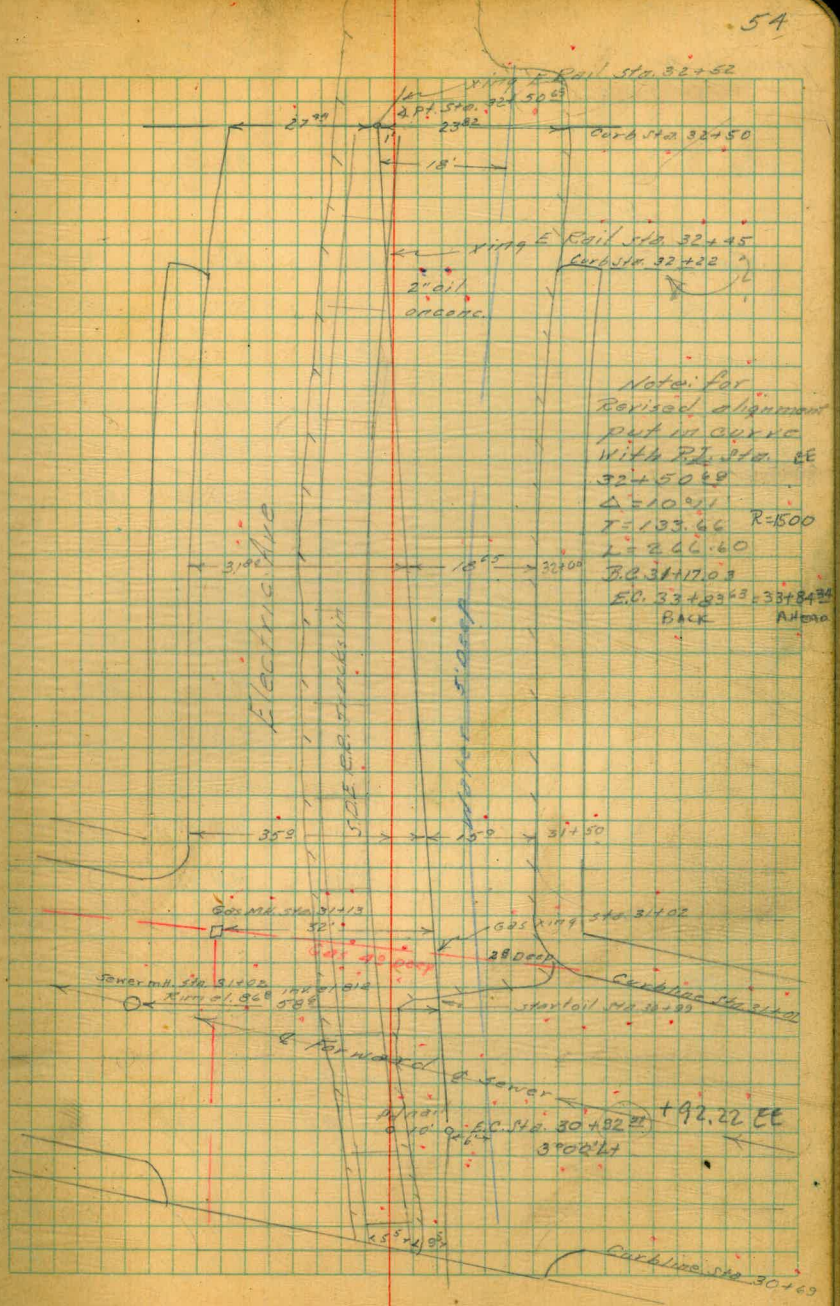 54
xing E Rail sta. 32+52
Δ Pt. Sta. 32+50 69
27 99
23 82
Curb sta 32+50
1'
18'
xing E Rail sta. 32+45
Curb sta. 32+22
2" oil
on conc.
Note: for
Revised alignment
put in curve
with P.I. Sta. EE
32+50 69
Δ = 10°11'
T = 133.66
R=1500
L = 266.60
B.C. 31+17.03
E.C. 33+83 63 = 33+84 34
BACK
AHEAD
Electric Ave
18 65
32+00
S.D.E.R.R. Tracks in
Water 5' Deep
35 0
15 0
31+50
Gas M.H. sta 31+13
32'
Gas xing sta 31+02
Gas 4 0 Deep
2 8 Deep
Sewer m.H. sta. 31+02
Rim el. 86 8
58 6
Curbline sta 31+01
start oil sta 30+99
Forward
Sewer
+92.22 EE
10'
E.C. Sta. 30+92 21
3°00' Lt
Curbline sta 30+69